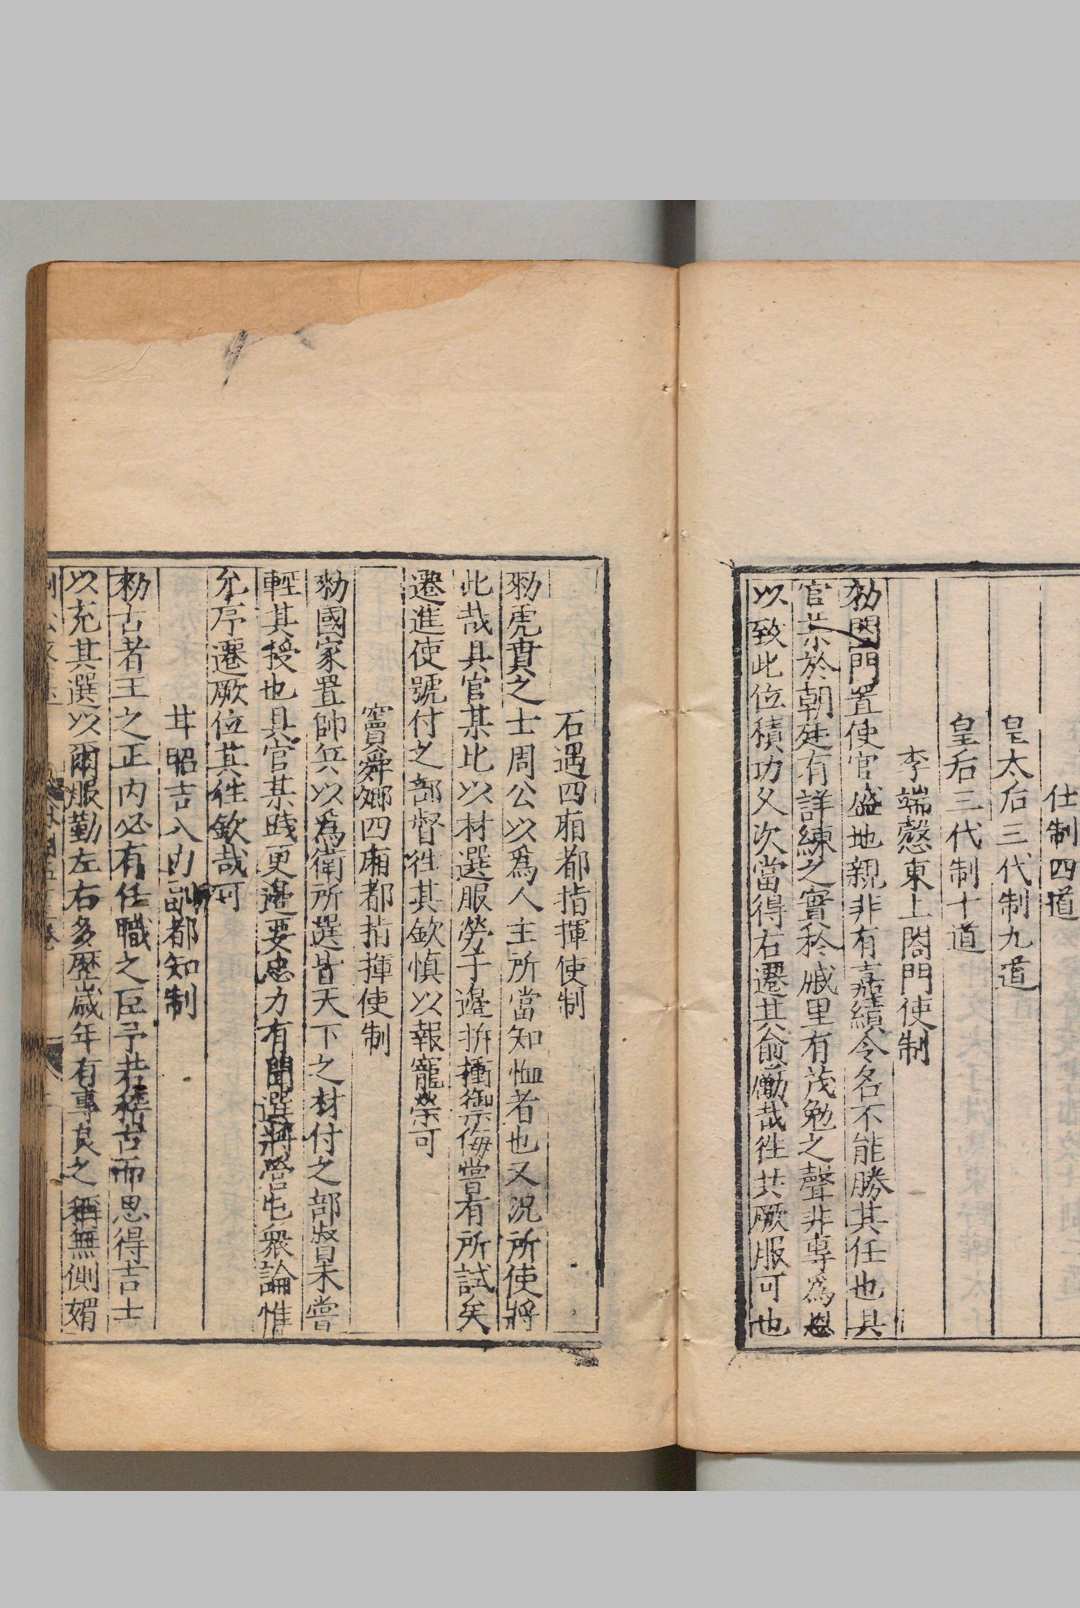 仕制四道
皇太后三代制九道
皇后三代制十道
李端慤東上閤門使制
勑閤門置使官盛地親非有嘉績令名不能勝其任也具
官某於朝廷有詳練之實於戚里有茂勉之聲非專為恩
以致此位積功久次當得右遷其合勵哉徃共厥服可也
石遇四廂都指揮使制
勑虎賁之士周公以爲人主所當知恤者也又況所使將
此哉具官某比以材選服勞于邊折衝禦侮嘗有所試矣
遷進使號付之部督徃其欽慎以報寵榮可
竇舜卿四廂都指揮使制
勑國家置帥兵以為衛所選皆天下之材付之部督未嘗
輕其授也具官某踐更邊要忠力有聞選將營屯衆論惟
允序遷厥位其徃欽哉可
井昭吉入内副都知制
勑古者王之正内必有任職之臣予若稽古而思得吉士
以充其選以爾服勤左右多歷歲年有專良之稱無側媚